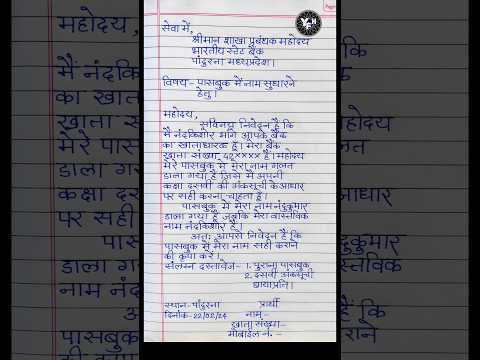 सेवा में,
श्रीमान शाखा प्रबंधक महोदय
भारतीय स्टेट बैंक
पांढुरना मध्यप्रदेश।
विषय - पासबुक में नाम सुधारने
हेतु।
महोदय,
सविनय निवेदन है कि
मैं नंदकिशोर आपके बैंक
का खाताधारक हूँ। मेरा बैंक
खाता संख्या 42×××× है। महोदय
मेरे पासबुक में मेरा नाम गलत
डाला गया है जिसे मैं अपनी
कक्षा दसवीं की अंकसूची के आधार
पर सही करना चाहता हूँ।
पासबुक में मेरा नाम नंदुकुमार
डाला गया है जबकि मेरा वास्तविक
नाम नंदकिशोर है।
अतः आपसे निवेदन है कि
पासबुक में मेरा नाम सही कराने
की कृपा करें।
संलग्न दस्तावेज - 1. पुराना पासबुक
2. दसवीं अंकसूची
छायाप्रति।
स्थान - पांढुरना प्रार्थी
दिनांक - 22/02/24 नाम -
खाता संख्या -
मोबाईल नं. -